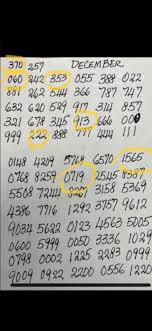 370 257 DECEMBER
060 242 353 055 388 022
881 262 544 366 787 747
632 620 529 917 314 857
321 678 345 913 666 000
999 222 888 777 444 111
0148 4209 5768 6570 1565
0768 8259 0719 2545 8337
5508 7244 8207 3158 5369
4386 7716 1292 3757 9612
9034 5622 0123 4563 5005
0600 5999 0050 3336 1029
0798 0002 1225 2283 0999
9009 0922 2200 0556 1220